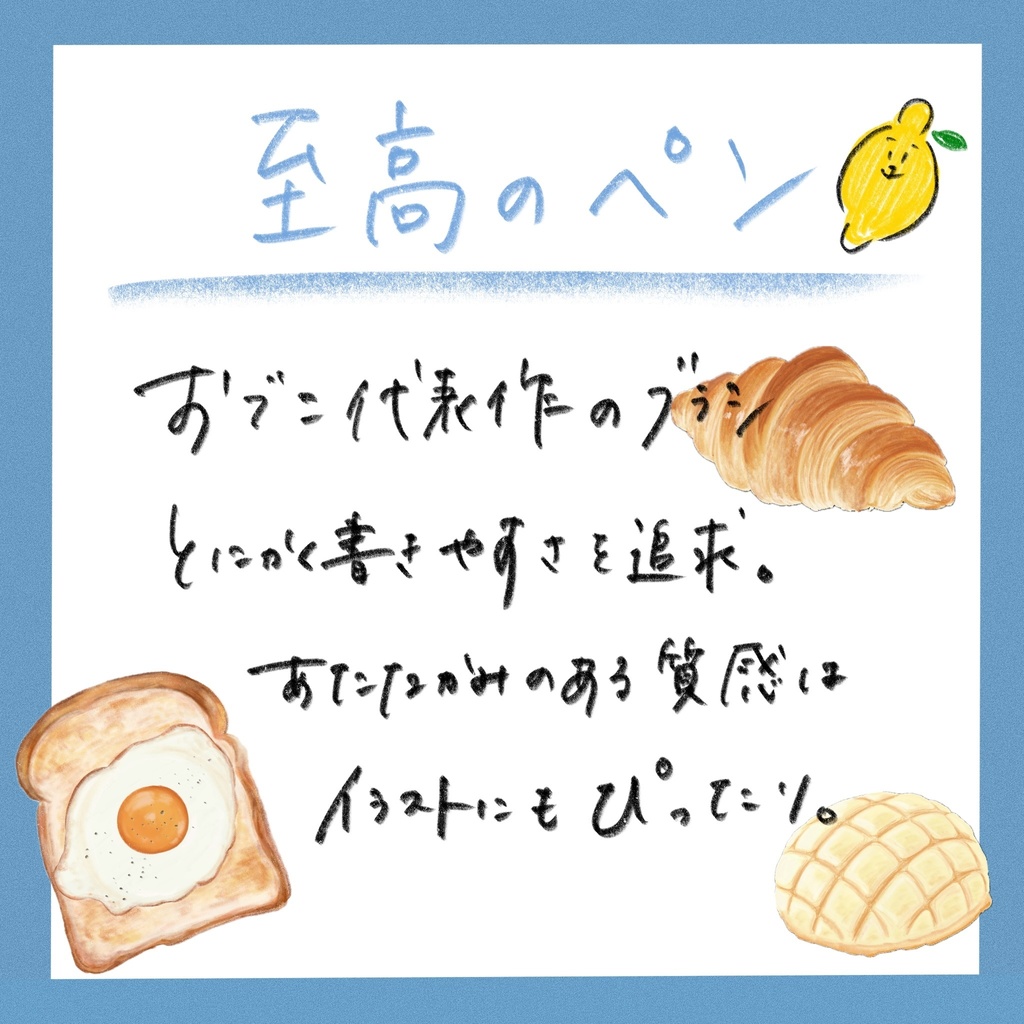 至高のペン
おでこ代表作のブラシ
とにかく書きやすさを追求。
あたたかみのある質感は
イラストにもぴったり。